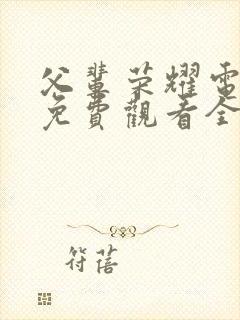 父輩榮耀電
免費觀看全
符蓓